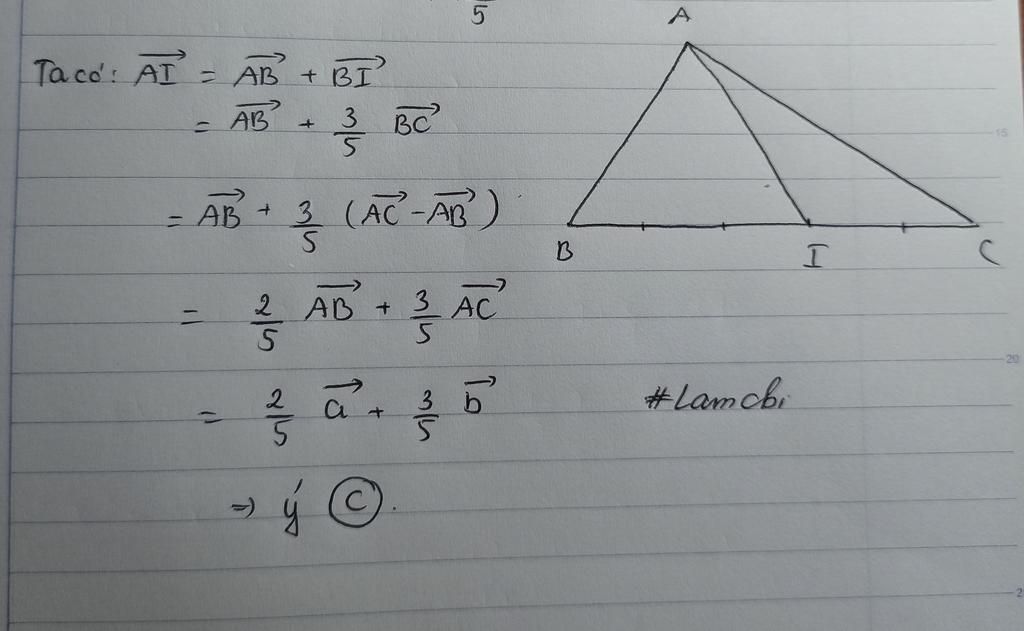 5
A
Ta có: $\overrightarrow{AI} = \overrightarrow{AB} + \overrightarrow{BI}$
$= \overrightarrow{AB} + \frac{3}{5} \overrightarrow{BC}$
15
$= \overrightarrow{AB} + \frac{3}{5} (\overrightarrow{AC} - \overrightarrow{AB})$
B I C
$= \frac{2}{5} \overrightarrow{AB} + \frac{3}{5} \overrightarrow{AC}$
20
$= \frac{2}{5} \overrightarrow{a} + \frac{3}{5} \overrightarrow{b}$
#Lamcbi
=> ý C.
2